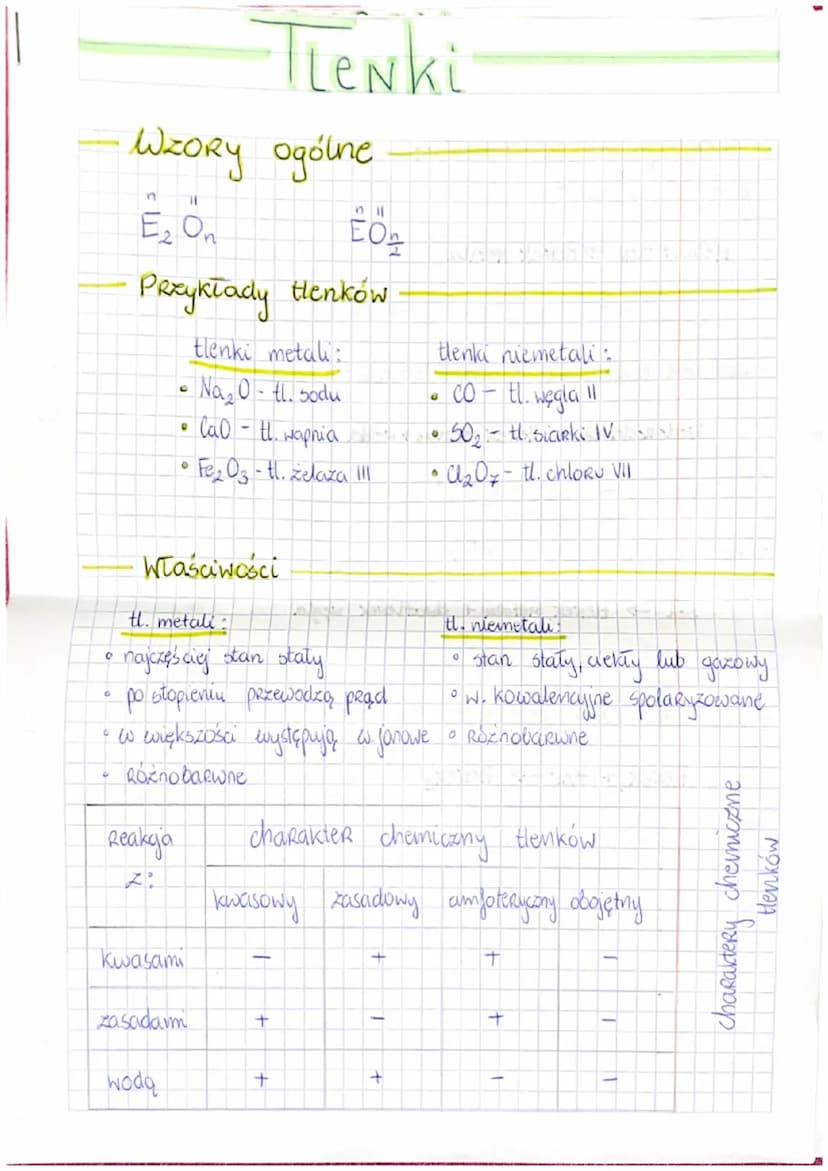 Tlenki
Wzory ogólne
n II n II
E₂Oₙ EOₙ/₂
Przykłady tlenków
tlenki metali: tlenki niemetali:
• Na₂O - tl. sodu • CO - tl. węgla II
• CaO - tl. wapnia • SO₂ - tl. siarki IV
• Fe₂O₃ - tl. żelaza III • Cl₂O₇ - tl. chloru VII
Właściwości
tl. metali: tl. niemetali:
• najczęściej stan stały • stan stały, ciekły lub gazowy
• po stopieniu przewodzą prąd • w. kowalencyjne spolaryzowane
• w większości występują w. jonowe • Różnobarwne
• Różnobarwne
Reakcja z: charakter chemiczny tlenków
kwasowy zasadowy amfoteryczny obojętny
kwasami - + + -
zasadami + - + -
wodą + + - -
charaktery chemiczne
tlenków